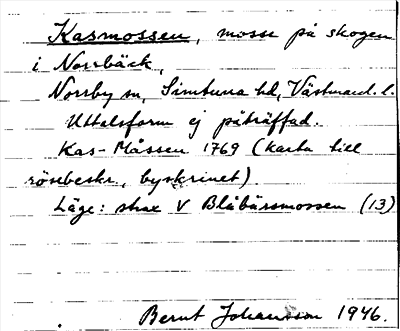 Kasmossen, mosse på skogen
i Norrbäck,
Norrby sn, Simtuna hd, Västmanl. l.
Uttalsform ej påträffad.
Kas-Måssen 1769 (karta till
rösebeskr., byskrinet).
Läge: strax V Blåbärsmossen (13)
Bernt Johansson 1946.